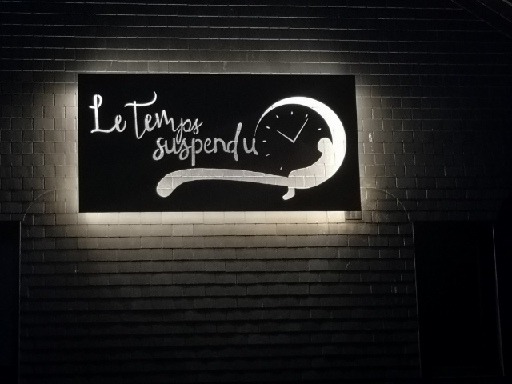 Le Temps
suspendu